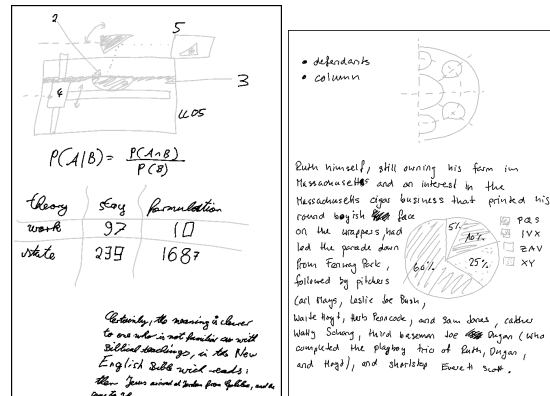 2
5
3
4
4.05
P(A|B) = P(A∩B) / P(B)
theory stay formulation
work 97 10
state 239 1687
Certainly, the meaning is clearer
to one who is not familiar with
Biblical teachings, in the New
English Bible which reads:
then Jesus arrived at Jordan from Galilee, and
• defendants
• column
Ruth himself, still owning his farm in
Massachusetts and an interest in the
Massachusetts cigar business that printed his
round boyish face
on the wrappers, had
led the parade down
from Fenway Park,
followed by pitchers
Carl Mays, Leslie Joe Bush,
Waite Hoyt, Herb Pennock, and Sam Jones, catcher
Wally Schang, third baseman Joe Dugan (who
completed the playboy trio of Ruth, Dugan,
and Hoyt), and shortstop Everett Scott.
5%
10%
25%
60%
PQS
IVX
ZAV
XY